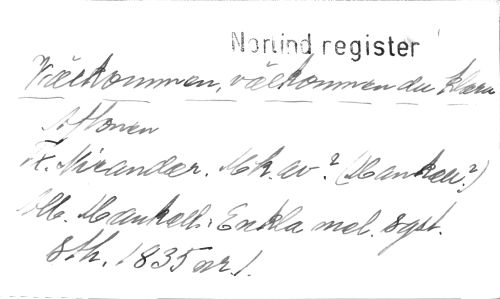 Norlind register
Välkommen, välkommen du klara
Aftonen
Fr. Mirandær. Mk. av? (Mankell?)
Abr. Mankell: Enkla mel. 8gst.
Sth. 1835 nr 1.